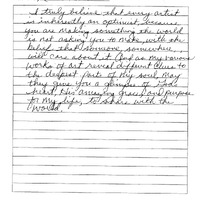 I truly believe that every artist
is inherently an optimist, because
you are making something the world
is not asking you to make, with the
belief that someone, somewhere,
will care about it. And as my various
works of art reveal different clues to
the deepest parts of my soul, may
they give you a glimpse of God's
heart, His amazing grace, and purpose
for my life, to share with the
world.